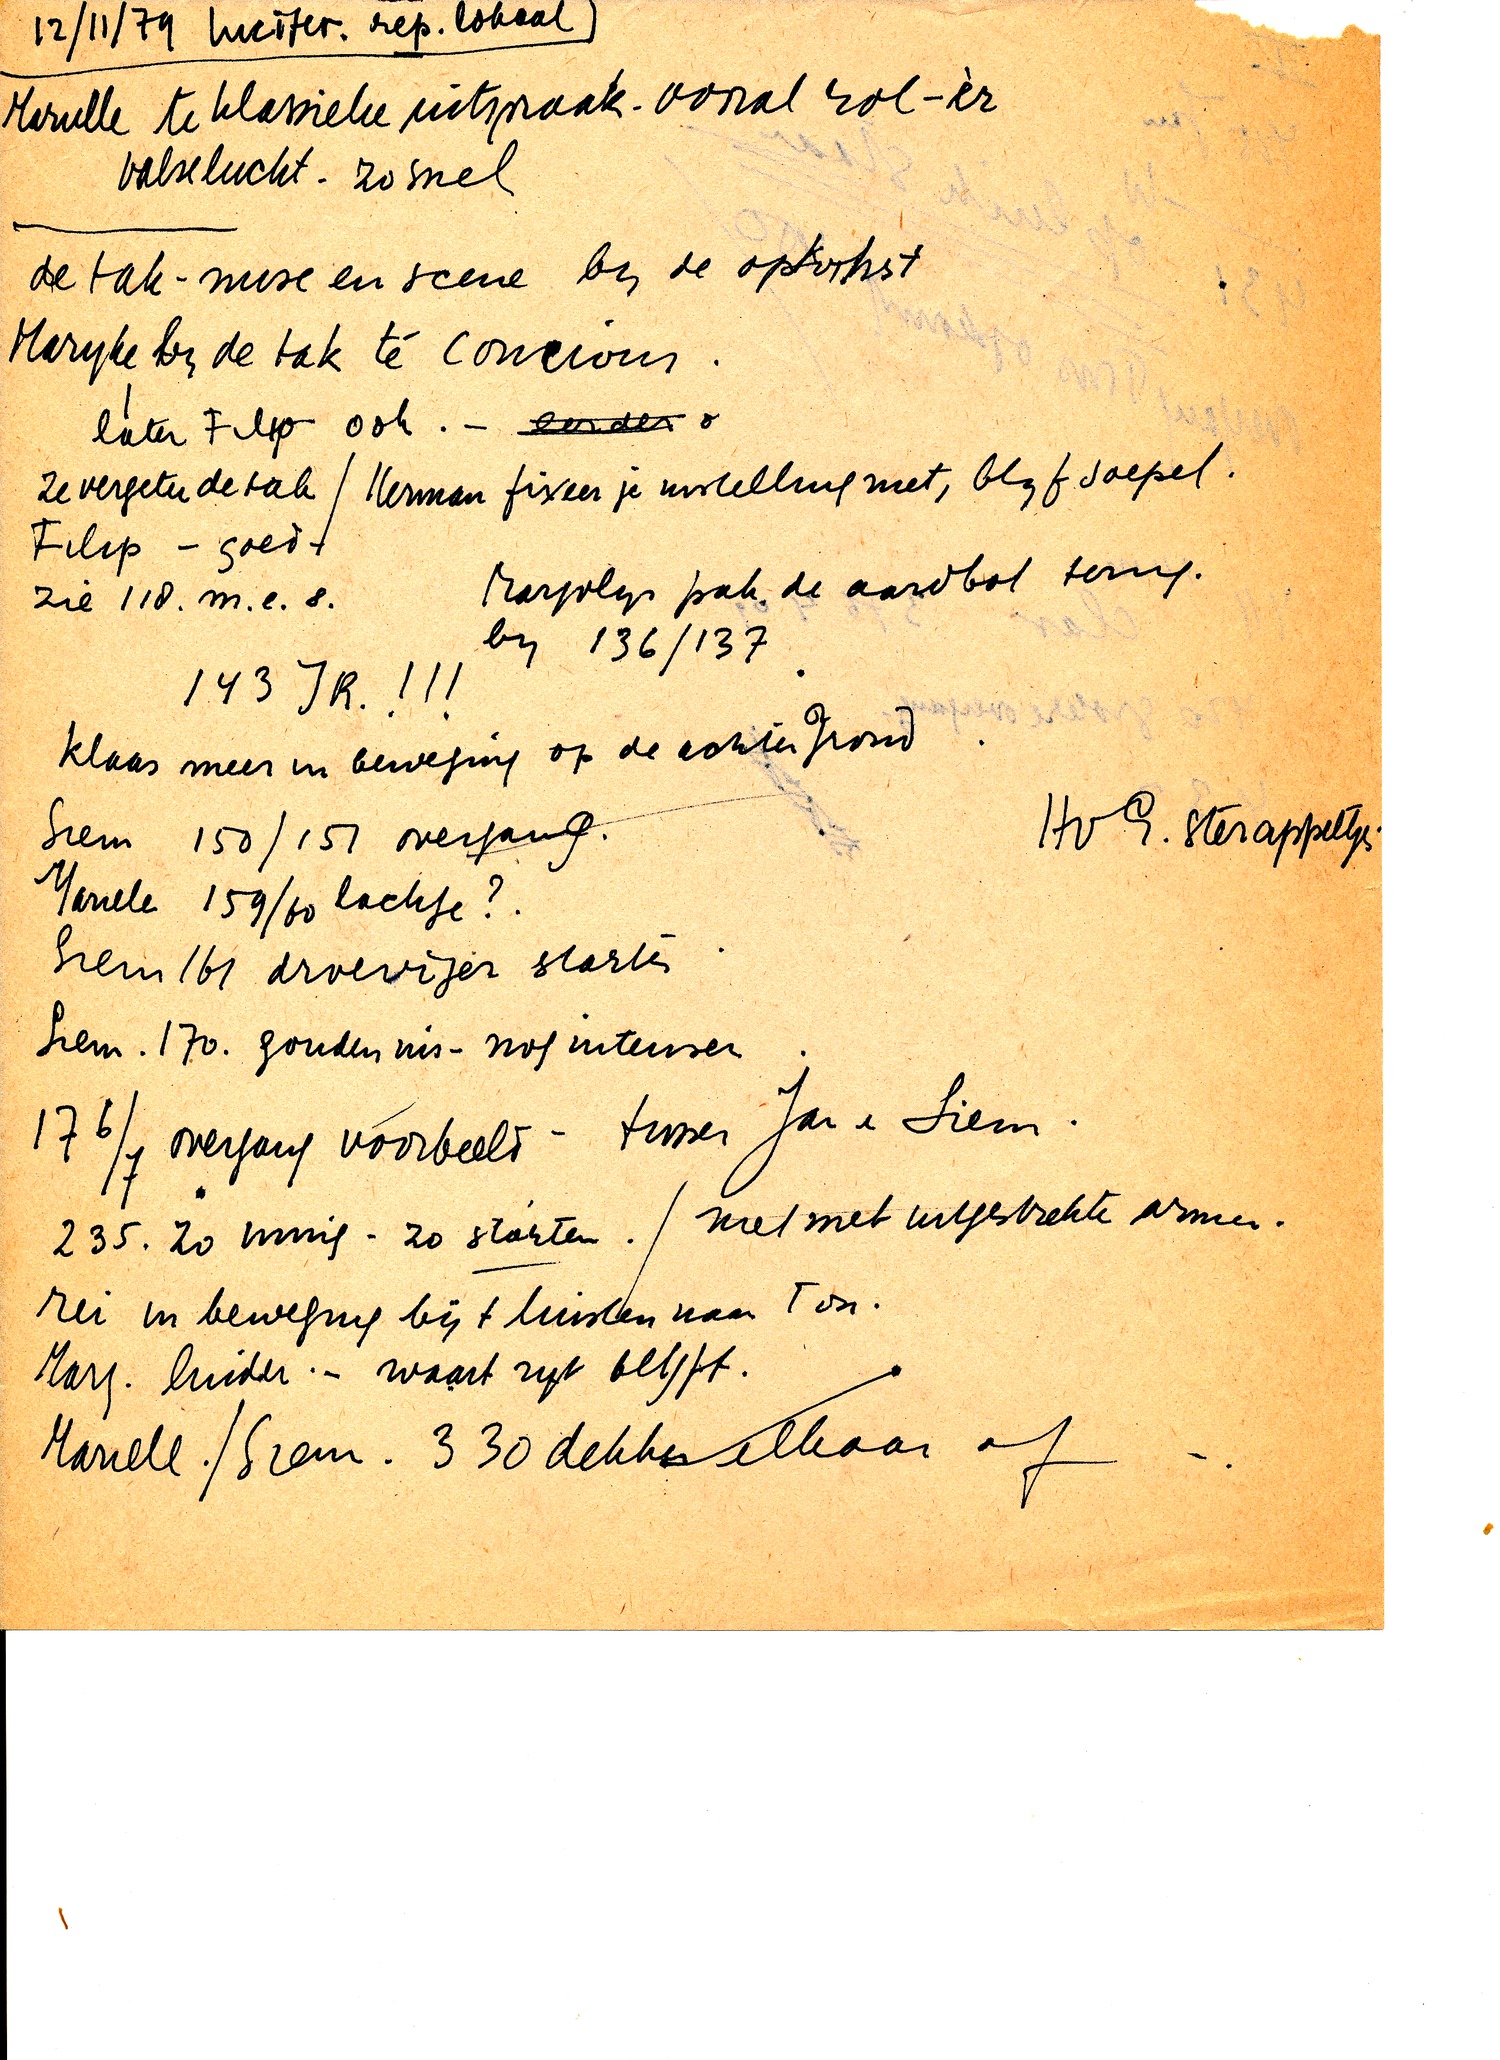 12/11/79 Lucifer. rep. lokaal
Marielle te klassieke uitspraak - vooral rol-èr
valse lucht - zo snel
de tak - mise en scene by de opkomst
Maryke by de tak té concious.
later Filip ook. -
ze vergeten de tak / Herman fixeer je instelling niet, blyf soepel.
Filip - goed
zie 118. m.e.s.
Marjolijn pak de aardbol terug.
by 136/137
143 JR. !!!
Klaas meer in beweging op de achtergrond
Siem 150/151 overgang.
HvG. sterappeltjes
Marielle 159/60 lachje?.
Siem 161 droeviger starten
Siem. 170. gouden nis - nog intenser
176/7 overgang voorbeeld - tussen Jan e Siem.
235. zo innig - zo starten. / niet met uitgestrekte armen.
rei in beweging bij 't luisteren naar Ton.
Marj. luider. - waart blijft.
Marielle. / Siem. 330 dekken elkaar af - .